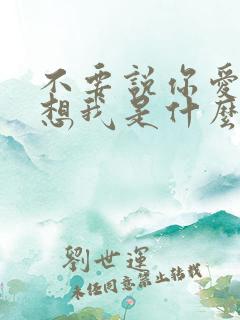 不要說你愛
想我是什麼
劉世運
未經同意禁止轉載